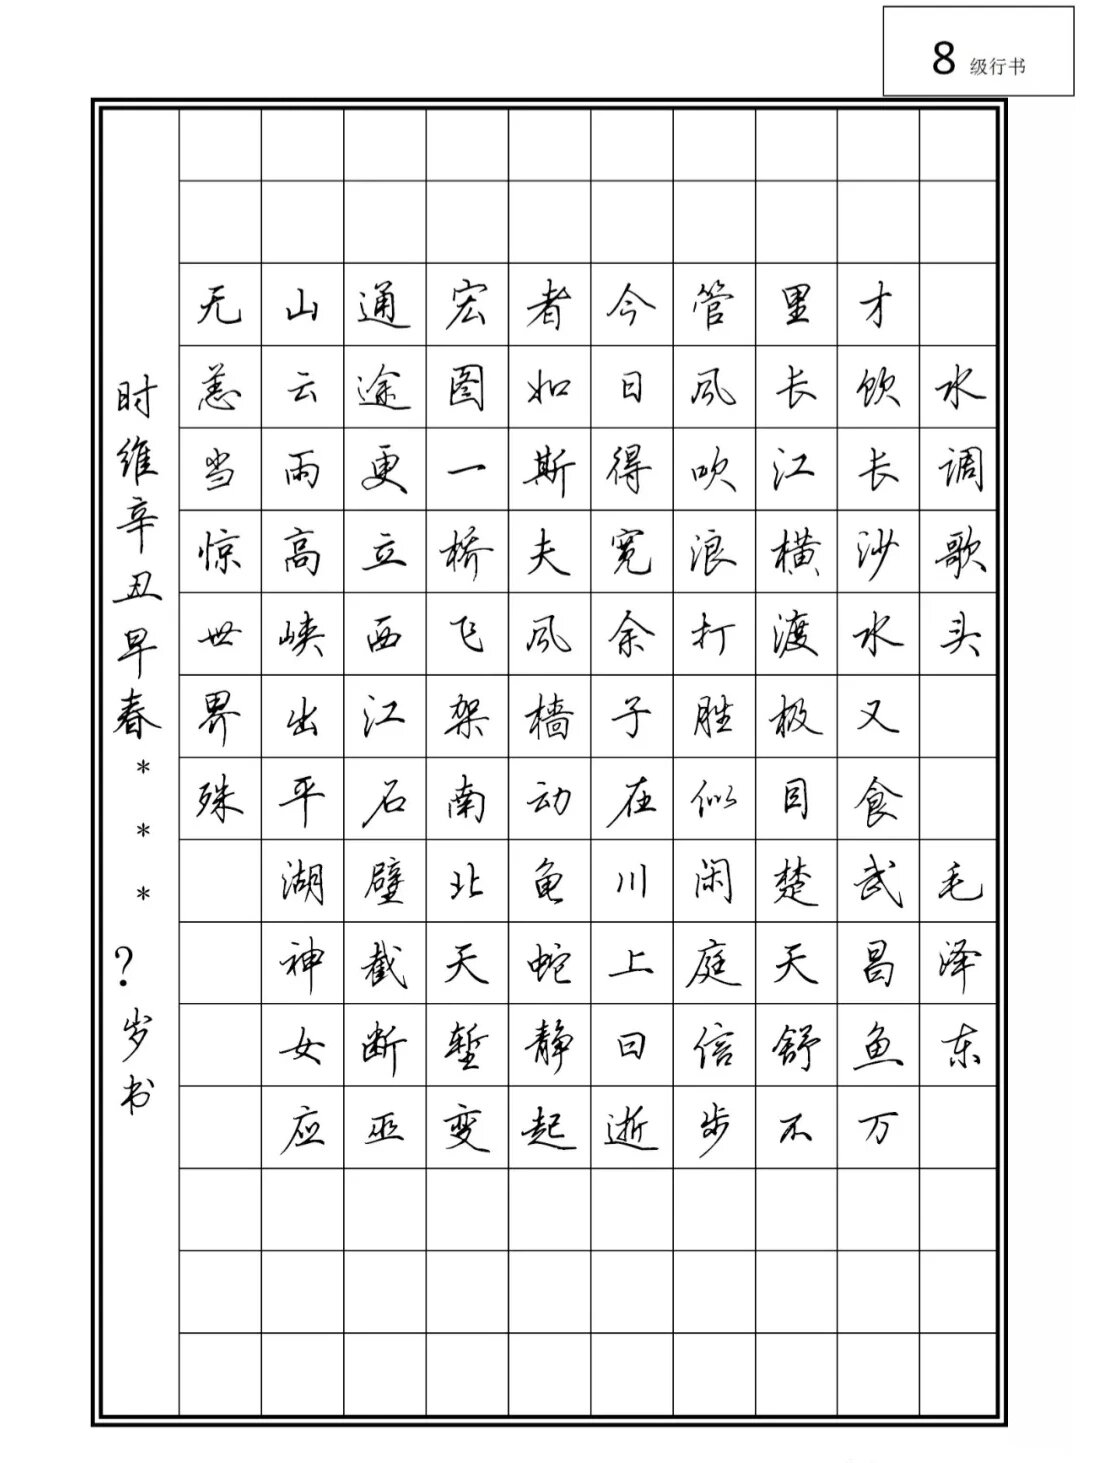 8 级行书
水调歌头 毛泽东
才饮长沙水又食武昌鱼万
里长江横渡极目楚天舒不
管风吹浪打胜似闲庭信步
今日得宽余子在川上曰逝
者如斯夫风樯动龟蛇静起
宏图一桥飞架南北天堑变
通途更立西江石壁截断巫
山云雨高峡出平湖神女应
无恙当惊世界殊
时维辛丑早春***?岁书